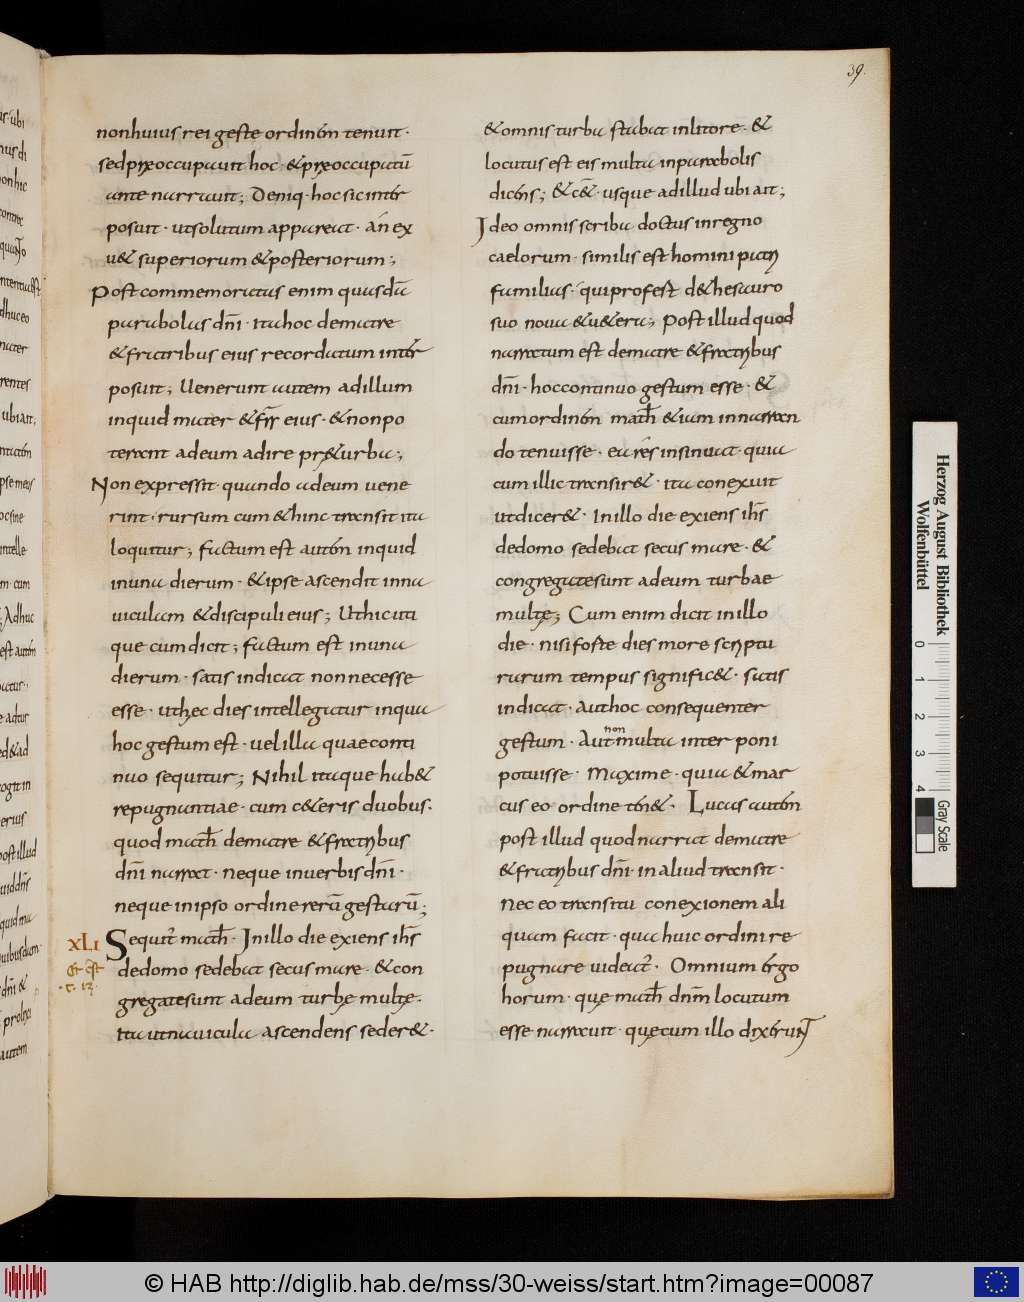 39.
non huius rei geste ordinem tenuit·
sed praeoccupauit hoc· & praeoccupatū
ante narrauit; Deniq· hoc sic inter
posuit· ut solutum appareat· am̄ ex
u& superiorum & posteriorum;
Post commemoratas enim quasdā
parabolas dn̄i· ita hoc dematre
& fratribus eius recordatum inter
posuit; Uenerunt autem ad illum
inquid mater & fr̄r eius· & non po
terant ad eum adire prę& urba;
Non expressit· quando ad eum uene
rint· rursum cum & hinc transit ita
loquitur; factum est autem inquid
in una dierum· & ipse ascendit in na
uiculam & discipuli eius; Ut hic ita
que cum dicit; factum est in una
dierum· satis indicat non necesse
esse· ut hęc dies intellegatur in qua
hoc gestum est· uel illa quae conti
nuo sequitur; Nihil itaque hab&
repugnantiae· cum c&eris duobus·
quod math̄ dematre & fratribus
dn̄i narrat· neque in uerbis dn̄i·
neque in ipso ordine rerū gestarū;
XLI
Sequit̄ math̄· In illo die exiens ih̄s
dedomo sedebat secus mare· & con
gregate sunt ad eum turbę multę·
ita ut nauicula ascendens seder&·
& omnis turba stabat in litore· &
locutus est eis multa in parabolis
dicens; & c&̄· usque ad illud ubi ait;
Ideo omnis scriba doctus in regno
caelorum· similis est homini patri
familias· qui profest de thesauro
suo noua & u&era; Post illud quod
narratum est dematre & fratribus
dn̄i· hoc continuo gestum esse· &
cum ordinem math̄ & iam in narran
do tenuisse· ea res insinuat· quia
cum illic transir&· ita conexuit
ut dicer&· In illo die exiens ih̄s
dedomo sedebat secus mare· &
congregate sunt ad eum turbae
multę; Cum enim dicit in illo
die· nisi fofte dies more scriptu
rarum tempus signific&· satis
indicat· aut hoc consequenter
gestum· Aut non multa inter poni
potuisse· Maxime· quia & mar
cus eo ordine ten&· Lucas autem
post illud quod narrat dematre
& fratribus dn̄i· in aliud transit·
Nec eo transitu conexionem ali
quam facit· qua huic ordini re
pugnare uideat̄· Omnium ergo
horum· que math̄ dnm̄ locutum
esse narrauit· quęcum illo dixerunt
Herzog August Bibliothek
Wolfenbüttel
0 1 2 3 4
Gray Scale
© HAB http://diglib.hab.de/mss/30-weiss/start.htm?image=00087